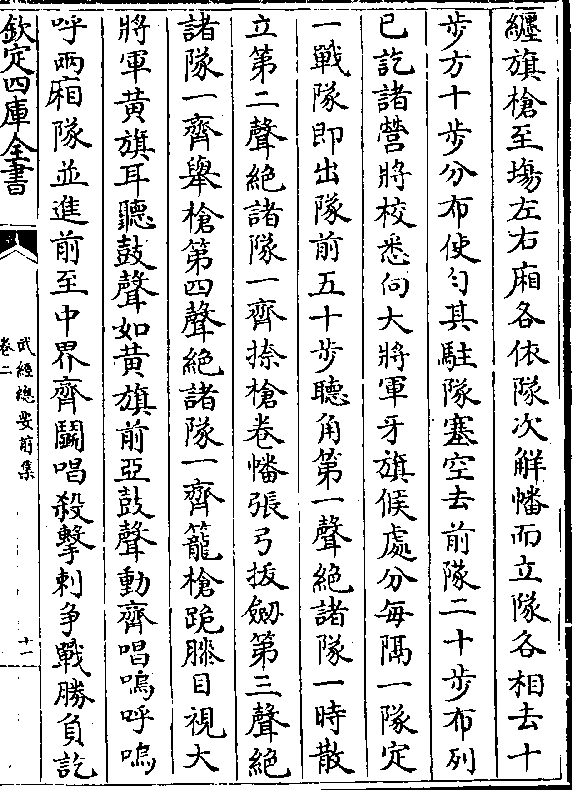 纏旗槍至塲左右廂各依隊次解幡而立隊各相去十
步方十步分布使勻其駐隊塞空去前隊二十步布列
已訖諸營將校悉向大將軍牙旗候處分每隅一隊定
一戰隊即出隊前五十步聽角第一聲絶諸隊一時散
立第二聲絶諸隊一齊捺槍卷幡張弓拔劒第三聲絶
諸隊一齊舉槍第四聲絶諸隊一齊籠槍跪膝目視大
將軍黄旗耳聽鼓聲如黄旗前亞鼓聲動齊唱嗚呼嗚
呼兩廂隊並進前至中界齊鬭唱殺擊刺争戰勝負訖
欽定四庫全書
武經總要前集
卷二
十一